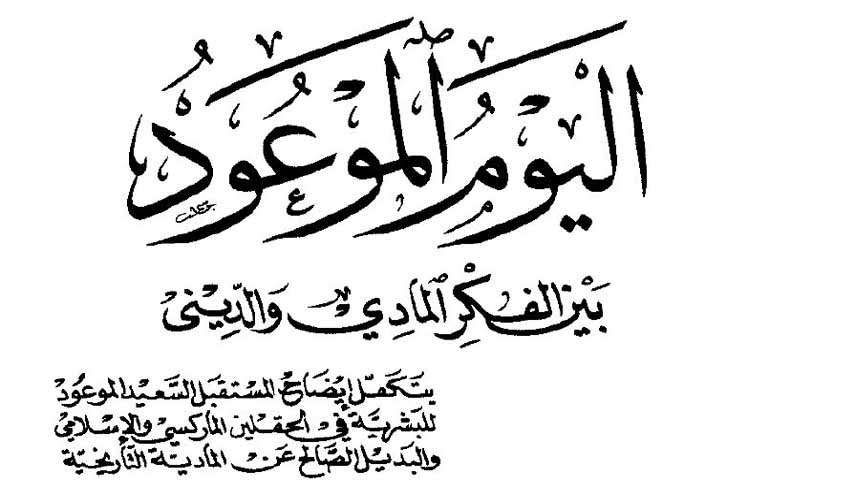 اليَوْمُ المَوْعُودُ
بَيْن الفِكْرِ المَادِي وَالدِّيْنى
يتكفّل إيضَاحُ المستقبل السَّعيد الموعُود
للبشريَّة في الحقلين الماركسي والإسْلامي
والبديل الصَّالح عَن الماديّة التَّأريخيَّة